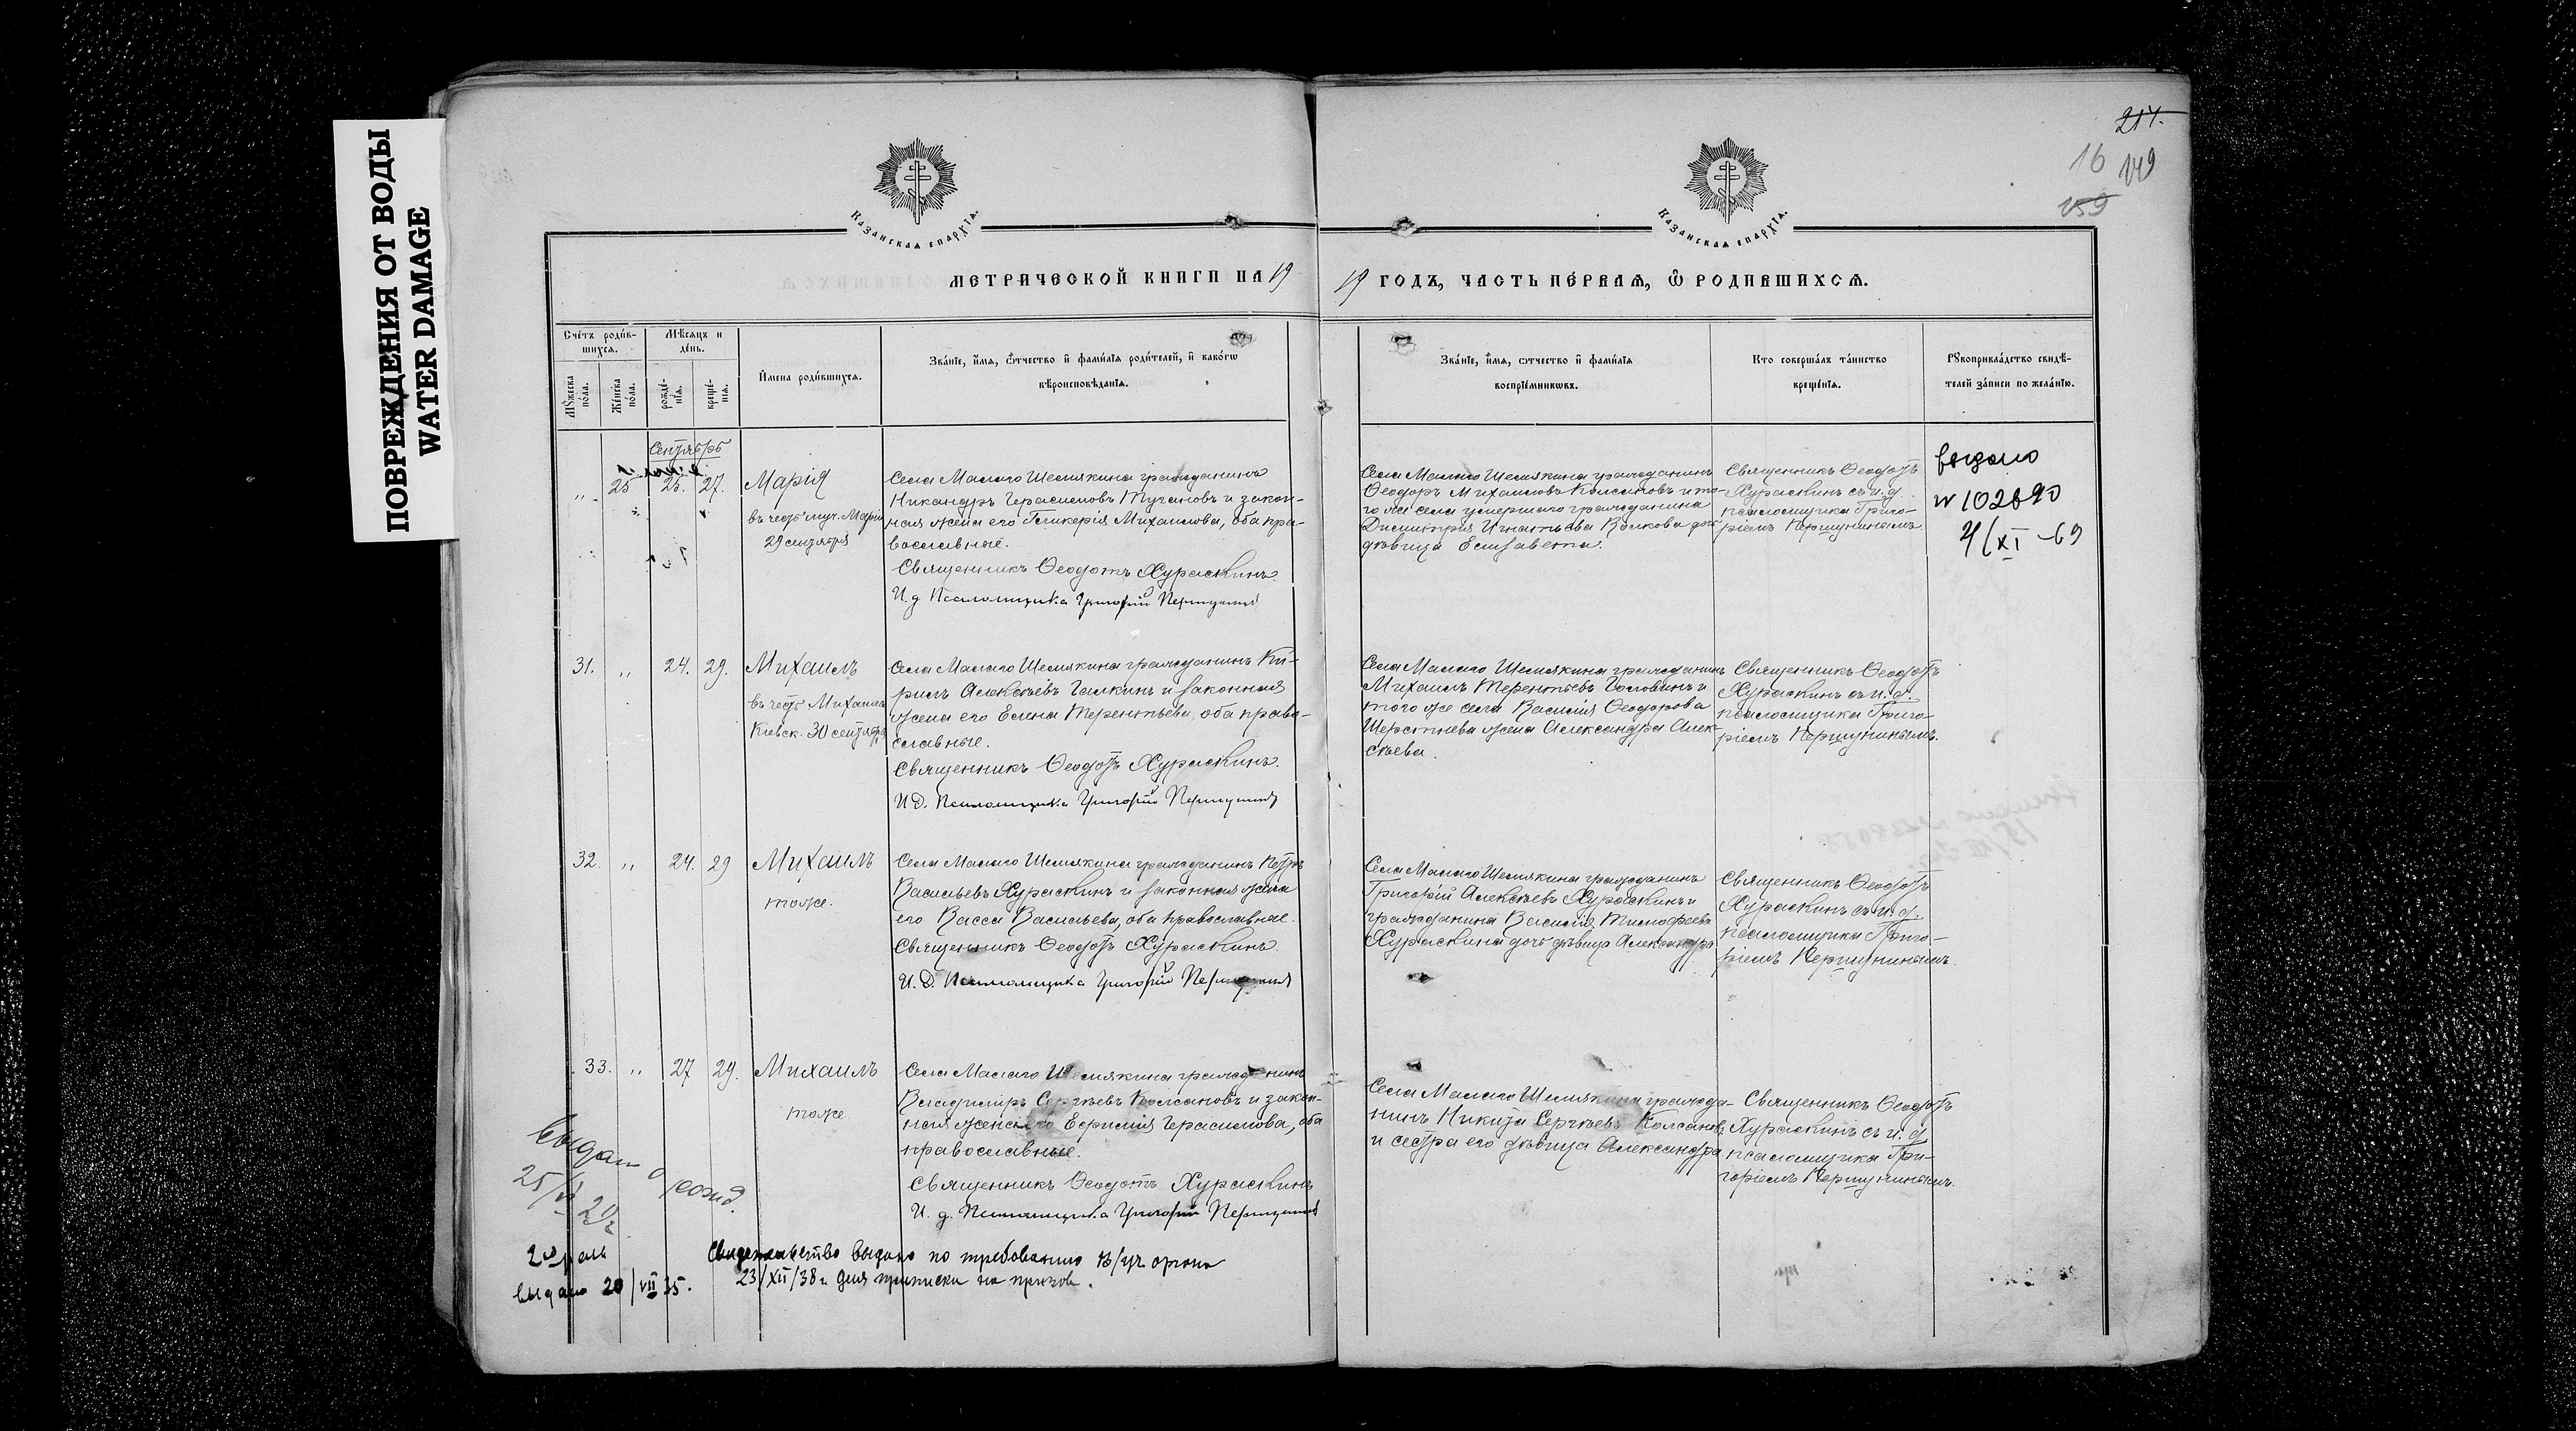 ПОВРЕЖДЕНИЯ ОТ ВОДЫ
WATER DAMAGE
214.
16 149
159
Казанская епархїѧ.
Казанская епархїѧ.
МЕТРИЧЕСКОЙ КНИГИ НА 19
19 ГОДЪ, ЧАСТЬ ПЕ́РВАѦ, Ѽ РОДИВШИХСѦ.
Сче́тъ роди́в-
шихсѧ.
Мѣ́сѧцъ и
де́нь.
Мꙋ́жеска
по́ла.
Же́нска
по́ла.
рожде́-
нїѧ.
креще́-
нїѧ.
И҆мена роди́вшихсѧ.
Зва́нїе, и҆́мѧ, ѻ҆́тчество и҆ фами́лїѧ роди́телей, и҆ како́гѡ
вѣроисповѣ́данїѧ.
Зва́нїе, и҆́мѧ, ѻ҆тчество и҆ фами́лїѧ
воспрїе́мникѡвъ.
Кто соверша́лъ та́инство
креще́нїѧ.
Рꙋкоприкла́дство свидѣ́-
телей за́писи по жела́нїю.
Сентябрь
„ 25 25. 27. Марія
въ честь муч. Маріи
29 сентября
Села Малаго Шемякина гражданинъ
Никандръ Герасимовъ Тугановъ и закон-
ная жена его Гликерія Михаилова, оба пра-
вославные.
Священникъ Ѳеодотъ Хураскинъ.
И. д Псаломщика Григорій Першунинъ
Села Малаго Шемякина гражданинъ
Ѳеодоръ Михаиловъ Колсановъ и то-
го же села умершаго гражданина
Димитрія Игнатьева Волкова дочь
дѣвица Елисавета.
Священникъ Ѳеодотъ
Хураскинъ съ и. д.
псаломщика Григо-
ріемъ Першунинымъ
выдано
№ 102690
4/XI-69
31. „ 24. 29. Михаилъ
въ честь Михаила
Кіевск. 30 сентября
Села Малаго Шемякина гражданинъ Ки-
рилъ Алексѣевъ Галкинъ и законная
жена его Елена Терентьева, оба право-
славные.
Священникъ Ѳеодотъ Хураскинъ.
И. Д. Псаломщика Григорій Першунинъ
Села Малаго Шемякина гражданинъ
Михаилъ Терентьевъ Головинъ и
того же села Василія Ѳеодорова
Шерстнева жена Александра Алек-
сѣева.
Священникъ Ѳеодотъ
Хураскинъ съ и. д.
псаломщика Григо-
ріемъ Першунинымъ.
32. „ 24. 29 Михаилъ
тоже.
Села Малаго Шемякина гражданинъ Петръ
Васильевъ Хураскинъ и законная жена
его Васса Васильева, оба православные.
Священникъ Ѳеодотъ Хураскинъ.
И. Д. Псаломщика Григорій Першунинъ
Села Малаго Шемякина гражданинъ
Григорій Алексѣевъ Хураскинъ и
гражданина Василія Тимофеева
Хураскина дочь дѣвица Александра
Священникъ Ѳеодотъ
Хураскинъ съ и. д.
псаломщика Григо-
ріемъ Першунинымъ.
33. „ 27 29. Михаилъ
тоже
Села Малаго Шемякина гражданинъ
Владимиръ Сергѣевъ Колсановъ и закон-
ная жена его Евфимія Герасимова, оба
православные.
Священникъ Ѳеодотъ Хураскинъ
И. д. Псаломщика Григорій Першунинъ
Села Малаго Шемякина гражда-
нинъ Никита Сергѣевъ Колсановъ
и сестра его дѣвица Александра.
Священникъ Ѳеодотъ
Хураскинъ съ и. д
псаломщика Гри-
горіемъ Першунинымъ.
Выдано
выдано 20/VII 35.
Свидетельство выдано по требованию В/уч. органа
23/XII/38 г для приписки на призов.